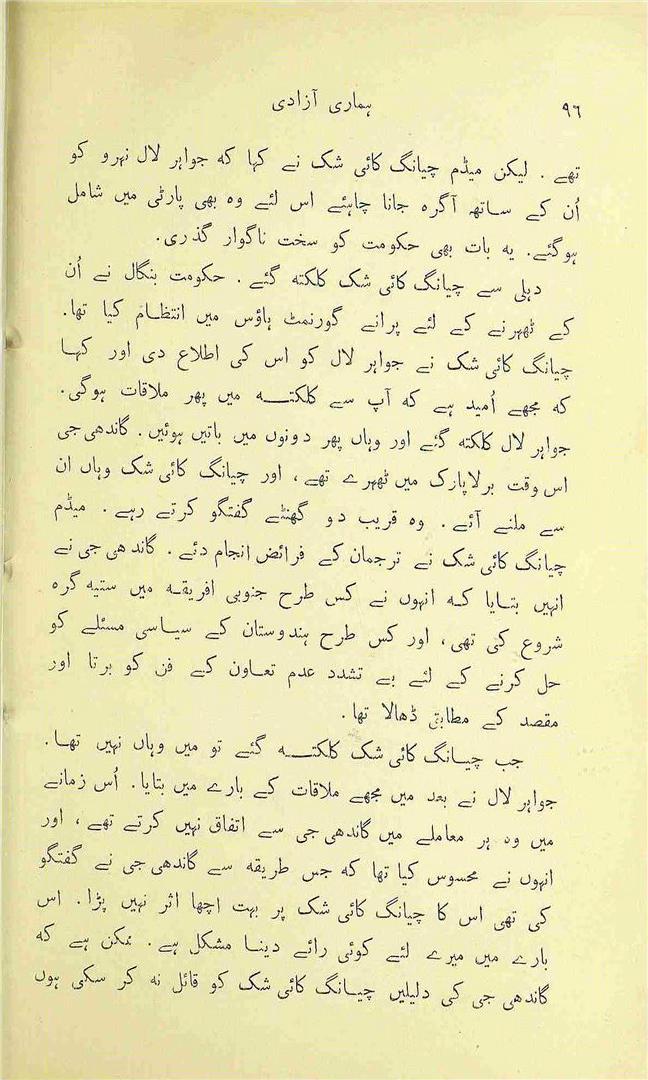 ۹٦ ہماری آزادی
تھے . لیکن میڈم چیانگ کائی شک نے کہا کہ جواہر لال نہرو کو
اُن کے ساتھ آگرہ جانا چاہئے اس لئے وہ بھی پارٹی میں شامل
ہوگئے. یہ بات بھی حکومت کو سخت ناگوار گذری.
دہلی سے چیانگ کائی شک کلکتہ گئے . حکومت بنگال نے اُن
کے ٹھہرنے کے لئے پرانے گورنمٹ ہاؤس میں انتظام کیا تھا.
چیانگ کائی شک نے جواہر لال کو اس کی اطلاع دی اور کہا
کہ مجھے اُمید ہے کہ آپ سے کلکتہ میں پھر ملاقات ہوگی.
جواہر لال کلکتہ گئے اور وہاں پھر دونوں میں باتیں ہوئیں. گاندھی جی
اس وقت برلاپارک میں ٹھہرے تھے ، اور چیانگ کائی شک وہاں ان
سے ملنے آئے . وہ قریب دو گھنٹے گفتگو کرتے رہے . میڈم
چیانگ کائی شک نے ترجمان کے فرائض انجام دئے . گاندھی جی نے
انہیں بتایا کہ انہوں نے کس طرح جنوبی افریقہ میں ستیہ گرہ
شروع کی تھی ، اور کس طرح ہندوستان کے سیاسی مسئلے کو
حل کرنے کے لئے بے تشدد عدم تعاون کے فن کو برتا اور
مقصد کے مطابق ڈھالا تھا .
جب چیانگ کائی شک کلکتہ گئے تو میں وہاں نہیں تھا.
جواہر لال نے بعد میں مجھے ملاقات کے بارے میں بتایا. اُس زمانے
میں وہ ہر معاملے میں گاندھی جی سے اتفاق نہیں کرتے تھے ، اور
انہوں نے محسوس کیا تھا کہ جس طریقہ سے گاندھی جی نے گفتگو
کی تھی اس کا چیانگ کائی شک پر بہت اچھا اثر نہیں پڑا . اس
بارے میں میرے لئے کوئی رائے دینا مشکل ہے . ممکن ہے کہ
گاندھی جی کی دلیلیں چیانگ کائی شک کو قائل نہ کر سکی ہوں